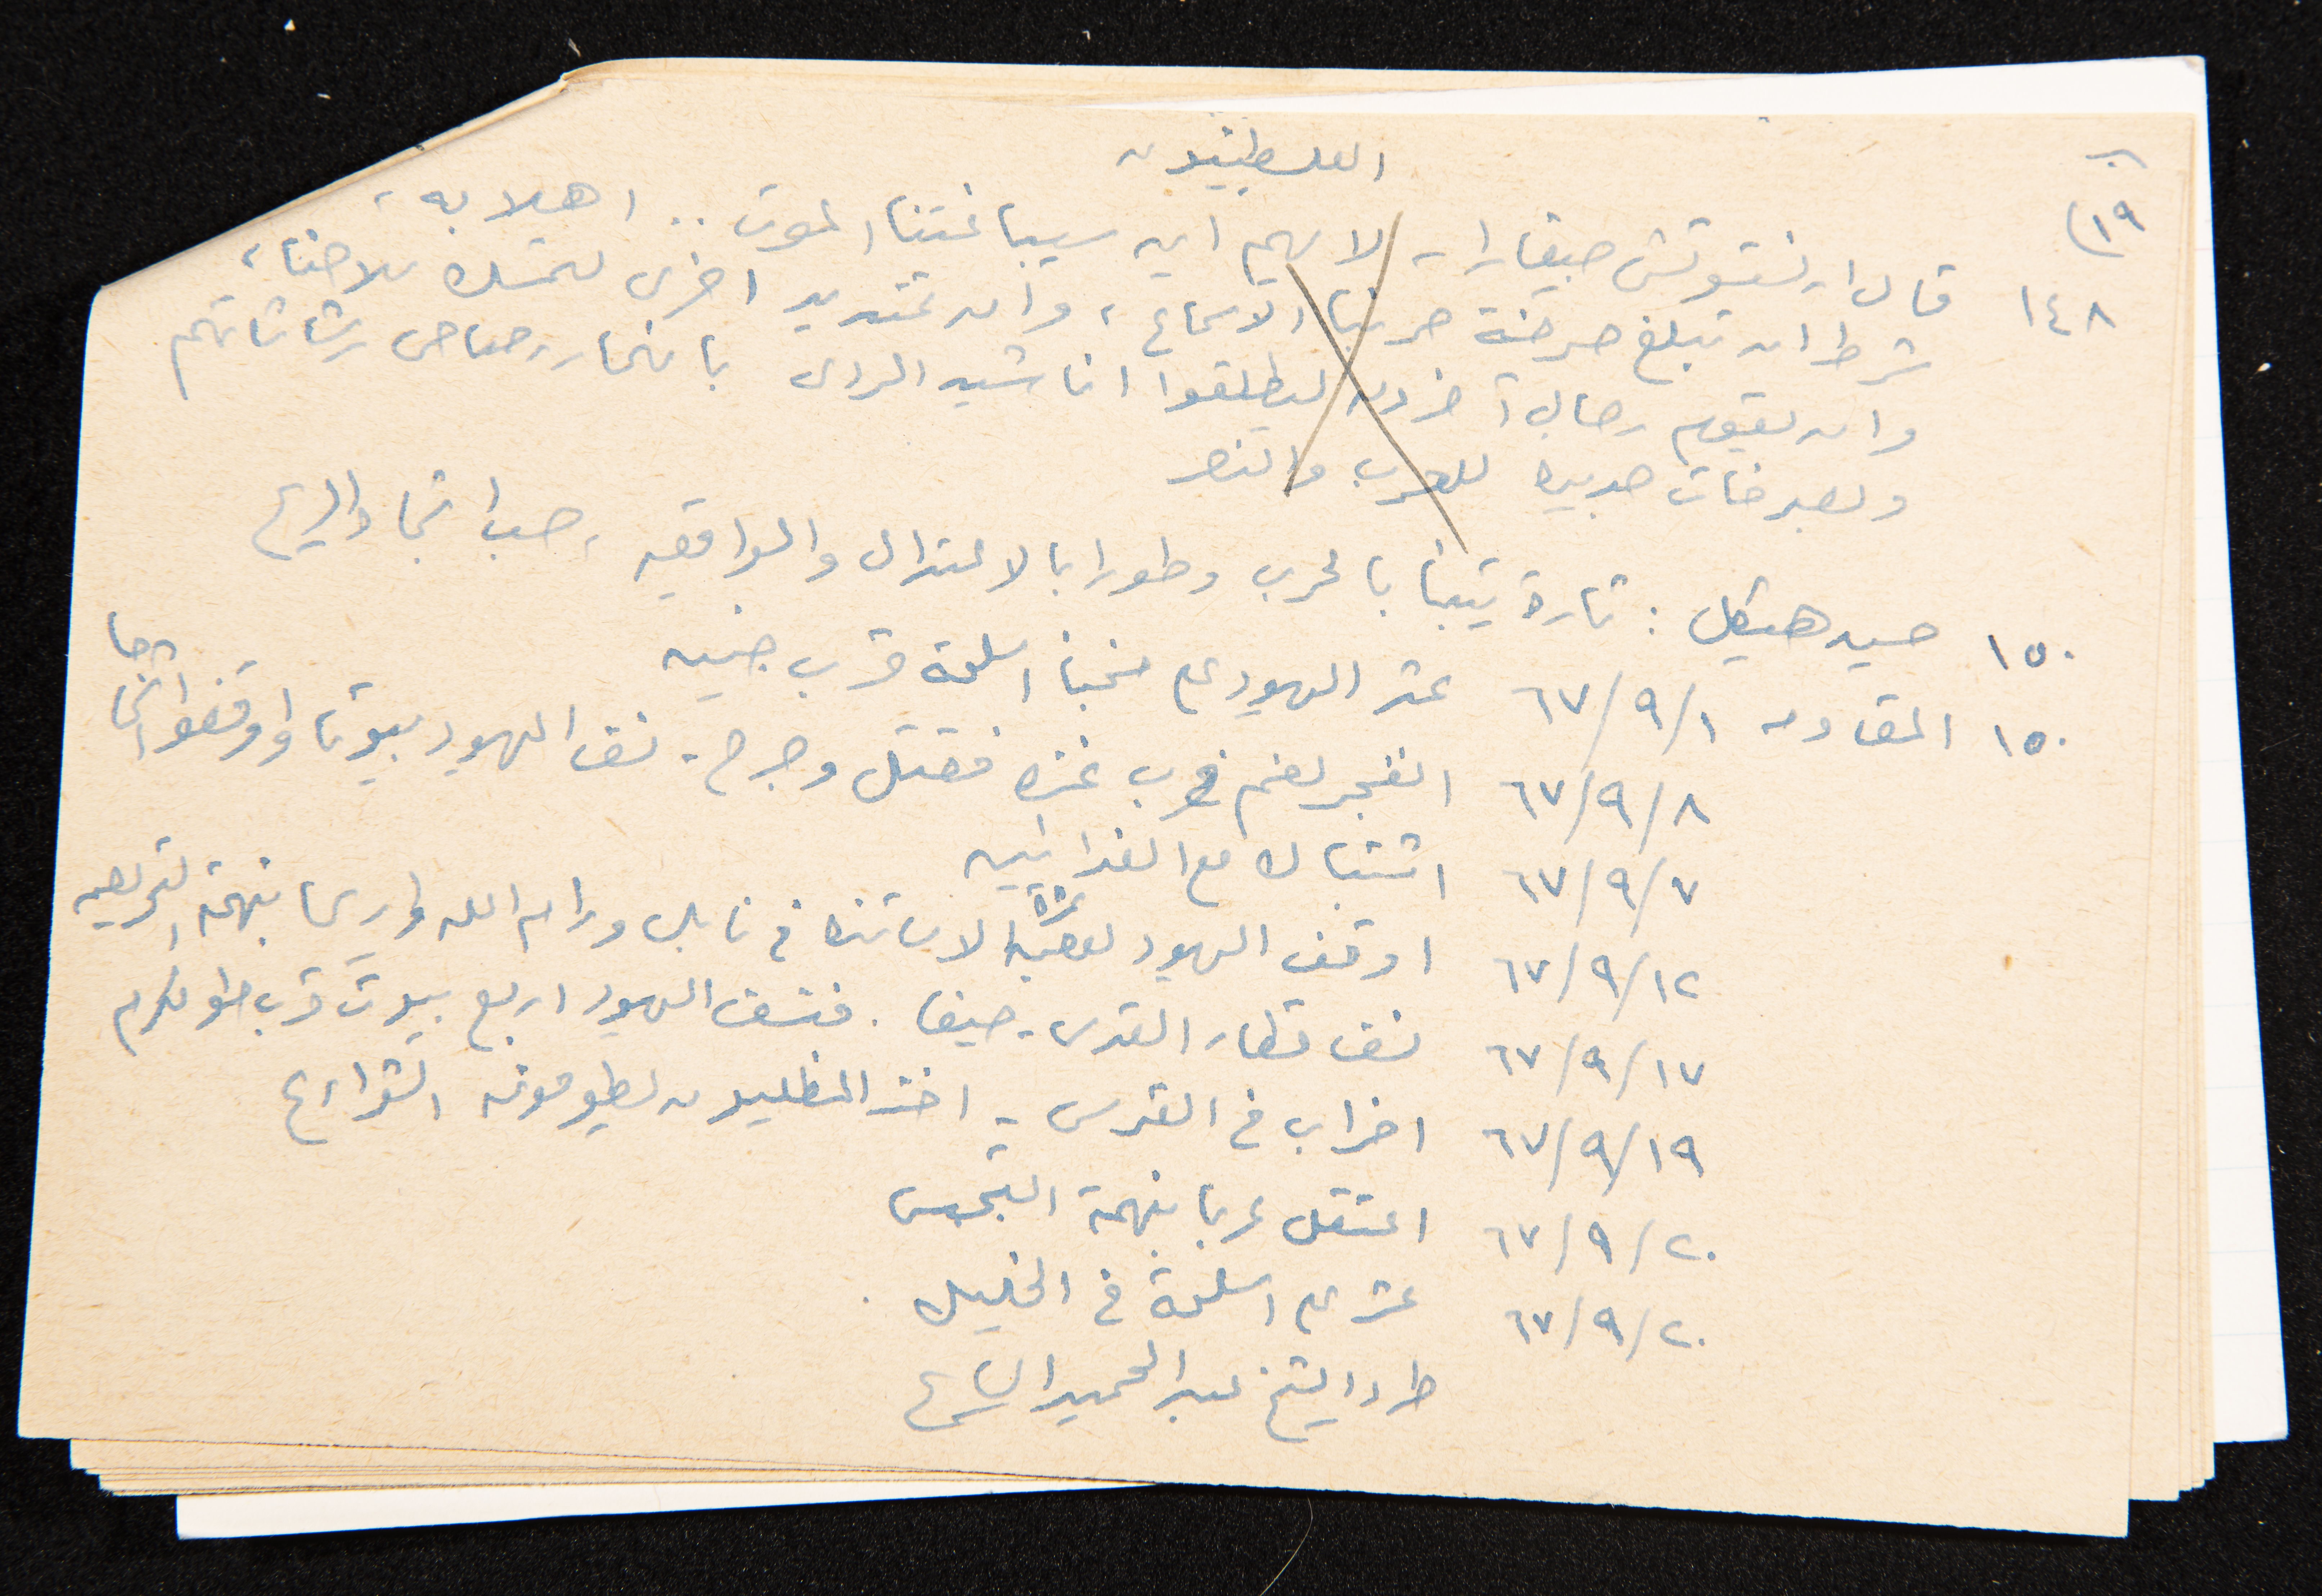 الفلسطينيون
١٩)
١٤٨ قال ارنستوتشي جيفارا - لا يهم اين سيباغتنا الموت .. اهلا به -
شرط ان تبلغ صرخة حربنا الاسماع ، وان تمتد يد اخرى لتمسك سلاحنا ،
وان يقوم رجال آخرون ليطلقوا اناشيد الردى بانهمار رصاص رشاشاتهم
وبصرخات جديده للحرب والنصر
١٥٠ حسين هيكل : تارة يتنبأ بالحرب وطورا بالاعتدال والواقعيه ، حسب اتجاه الريح
١٥٠ المقاومه ٦٧/٩/١ عثر اليهود على مخبأ اسلحة قرب جنين
٦٧/٩/٨ انفجر لغم قرب غزه فقتل وجرح - نسف اليهود بيوتا واوقفوا اشخاصا
٦٧/٩/٧ اشتباك مع الفدائيين
٦٧/٩/١٢ اوقف اليهود بعض الاساتذه في نابلس ورام الله واريحا بتهمة التحريض
٦٧/٩/١٧ نسف قطار القدس - حيفا . فنسف اليهود اربع بيوت قرب طولكرم
٦٧/٩/١٩ اضراب في القدس - اخذ المظليون يطوفون الشوارع
٦٧/٩/٢٠ اعتقل عربا بتهمة التجسس
٦٧/٩/٢٠ عثر على اسلحة في الخليل .
طرد الشيخ عبد الحميد السايح